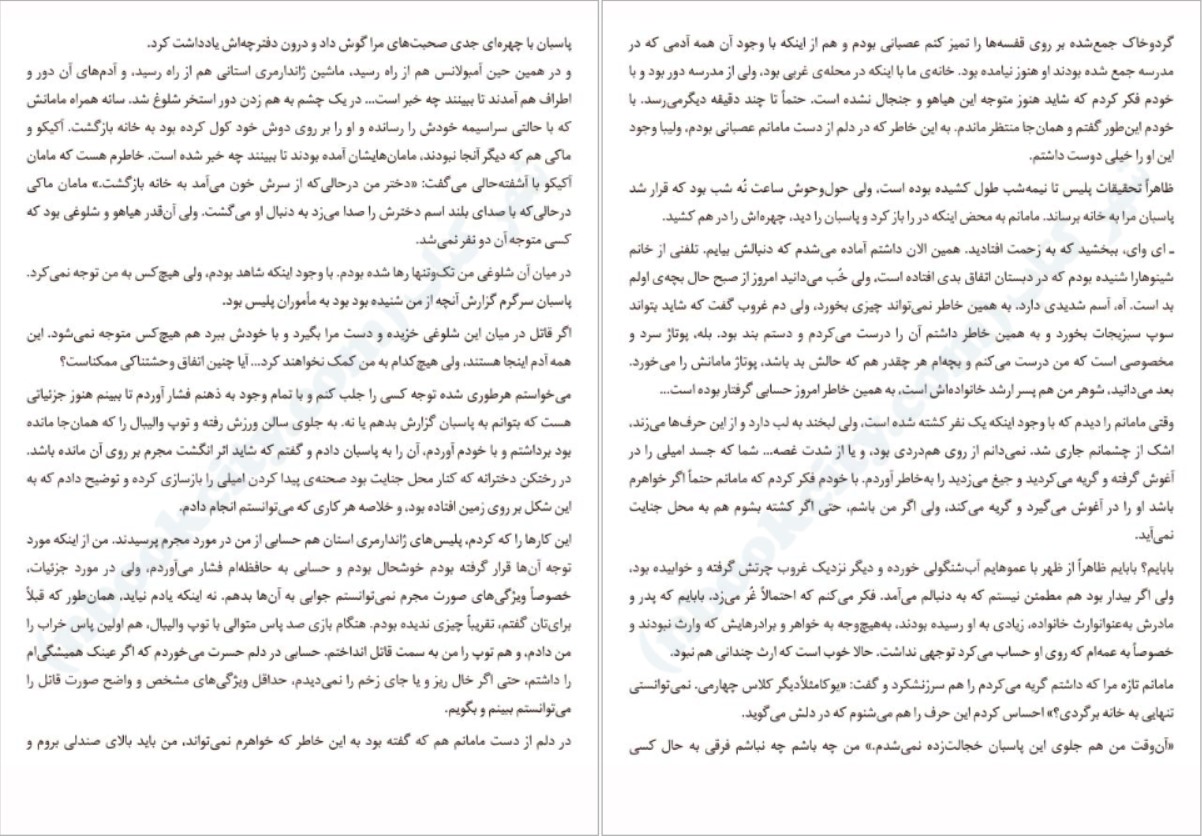 پاسبان با چهره‌ای جدی صحبت‌های مرا گوش داد و درون دفترچه‌اش یادداشت کرد.
و در همین حین آمبولانس هم از راه رسید، ماشین ژاندارمری استانی هم از راه رسید، و آدم‌های آن دور و
اطراف هم آمدند تا ببینند چه خبر است... در یک چشم به هم زدن دور استخر شلوغ شد. سائه همراه مامانش
که با حالتی سراسیمه خودش را رسانده و او را بر روی دوش خود کول کرده بود به خانه بازگشت. آکیکو و
ماکی هم که دیگر آنجا نبودند، مامان‌هایشان آمده بودند تا ببینند چه خبر شده است. خاطرم هست که مامان
آکیکو با آشفته‌حالی می‌گفت: «دختر من درحالی‌که از سرش خون می‌آمد به خانه بازگشت.» مامان ماکی
درحالی‌که با صدای بلند اسم دخترش را صدا می‌زد به دنبال او می‌گشت. ولی آن‌قدر هیاهو و شلوغی بود که
کسی متوجه آن دو نفر نمی‌شد.
در میان آن شلوغی من تک‌وتنها رها شده بودم. با وجود اینکه شاهد بودم، ولی هیچ‌کس به من توجه نمی‌کرد.
پاسبان سرگرم گزارش آنچه از من شنیده بود بود به مأموران پلیس بود.
اگر قاتل در میان این شلوغی خزیده و دست مرا بگیرد و با خودش ببرد هم هیچ‌کس متوجه نمی‌شود. این
همه آدم اینجا هستند، ولی هیچ‌کدام به من کمک نخواهند کرد... آیا چنین اتفاق وحشتناکی ممکناست؟
می‌خواستم هرطوری شده توجه کسی را جلب کنم و با تمام وجود به ذهنم فشار آوردم تا ببینم هنوز جزئیاتی
هست که بتوانم به پاسبان گزارش بدهم یا نه. به جلوی سالن ورزش رفته و توپ والیبال را که همان‌جا مانده
بود برداشتم و با خودم آوردم، آن را به پاسبان دادم و گفتم که شاید اثر انگشت مجرم بر روی آن مانده باشد.
در رختکن دخترانه که کنار محل جنایت بود صحنه‌ی پیدا کردن امیلی را بازسازی کرده و توضیح دادم که به
این شکل بر روی زمین افتاده بود، و خلاصه هر کاری که می‌توانستم انجام دادم.
این کارها را که کردم، پلیس‌های ژاندارمری استان هم حسابی از من در مورد مجرم پرسیدند. من از اینکه مورد
توجه آن‌ها قرار گرفته بودم خوشحال بودم و حسابی به حافظه‌ام فشار می‌آوردم، ولی در مورد جزئیات،
خصوصاً ویژگی‌های صورت مجرم نمی‌توانستم جوابی به آن‌ها بدهم. نه اینکه یادم نیاید. همان‌طور که قبلاً
برای‌تان گفتم، تقریباً چیزی ندیده بودم. هنگام بازی صد پاس متوالی با توپ والیبال، هم اولین پاس خراب را
من دادم، و هم توپ را من به سمت قاتل انداختم. حسابی در دلم حسرت می‌خوردم که اگر عینک همیشگی‌ام
را داشتم، حتی اگر خال ریز و یا جای زخم را نمی‌دیدم، حداقل ویژگی‌های مشخص و واضح صورت قاتل را
می‌توانستم ببینم و بگویم.
در دلم از دست مامانم هم که گفته بود به این خاطر که خواهرم نمی‌تواند، من باید بالای صندلی بروم و
شهر کتاب (nbookcity.com)
گردوخاک جمع‌شده بر روی قفسه‌ها را تمیز کنم عصبانی بودم و هم از اینکه با وجود آن همه آدمی که در
مدرسه جمع شده بودند او هنوز نیامده بود. خانه‌ی ما با اینکه در محله‌ی غربی بود، ولی از مدرسه دور بود و با
خودم فکر کردم که شاید هنوز متوجه این هیاهو و جنجال نشده است. حتماً تا چند دقیقه دیگرمی‌رسد. با
خودم این‌طور گفتم و همان‌جا منتظر ماندم. به این خاطر که در دلم از دست مامانم عصبانی بودم، ولیبا وجود
این او را خیلی دوست داشتم.
ظاهراً تحقیقات پلیس تا نیمه‌شب طول کشیده بوده است، ولی حول‌وحوش ساعت نُه شب بود که قرار شد
پاسبان مرا به خانه برساند. مامانم به محض اینکه در را باز کرد و پاسبان را دید، چهره‌اش را در هم کشید.
ـ ای وای، ببخشید که به زحمت افتادید. همین الان داشتم آماده می‌شدم که دنبالش بیایم. تلفنی از خانم
شینوهارا شنیده بودم که در دبستان اتفاق بدی افتاده است، ولی خُب می‌دانید امروز از صبح حال بچه‌ی اولم
بد است. آه، آسم شدیدی دارد. به همین خاطر نمی‌تواند چیزی بخورد، ولی دم غروب گفت که شاید بتواند
سوپ سبزیجات بخورد و به همین خاطر داشتم آن را درست می‌کردم و دستم بند بود. بله، پوتاژ سرد و
مخصوصی است که من درست می‌کنم و بچه‌ام هر چقدر هم که حالش بد باشد، پوتاژ مامانش را می‌خورد.
بعد می‌دانید، شوهر من هم پسر ارشد خانواده‌اش است. به همین خاطر امروز حسابی گرفتار بوده است...
وقتی مامانم را دیدم که با وجود اینکه یک نفر کشته شده است، ولی لبخند به لب دارد و از این حرف‌ها می‌زند،
اشک از چشمانم جاری شد. نمی‌دانم از روی هم‌دردی بود، و یا از شدت غصه... شما که جسد امیلی را در
آغوش گرفته و گریه می‌کردید و جیغ می‌زدید را به‌خاطر آوردم. با خودم فکر کردم که مامانم حتماً اگر خواهرم
باشد او را در آغوش می‌گیرد و گریه می‌کند، ولی اگر من باشم، حتی اگر کشته بشوم هم به محل جنایت
نمی‌آید.
بابایم؟ بابایم ظاهراً از ظهر با عموهایم آب‌شنگولی خورده و دیگر نزدیک غروب چرتش گرفته و خوابیده بود،
ولی اگر بیدار بود هم مطمئن نیستم که به دنبالم می‌آمد. فکر می‌کنم که احتمالاً غُر می‌زد. بابایم که پدر و
مادرش به‌عنوانوارث خانواده، زیادی به او رسیده بودند، به‌هیچ‌وجه به خواهر و برادرهایش که وارث نبودند و
خصوصاً به عمه‌ام که روی او حساب می‌کرد توجهی نداشت. حالا خوب است که ارث چندانی هم نبود.
مامانم تازه مرا که داشتم گریه می‌کردم را هم سرزنشکرد و گفت: «یوکامثلاًدیگر کلاس چهارمی. نمی‌توانستی
تنهایی به خانه برگردی؟» احساس کردم این حرف را هم می‌شنوم که در دلش می‌گوید.
«آن‌وقت من هم جلوی این پاسبان خجالت‌زده نمی‌شدم.» من چه باشم چه نباشم فرقی به حال کسی
شهر کتاب (nbookcity.com)